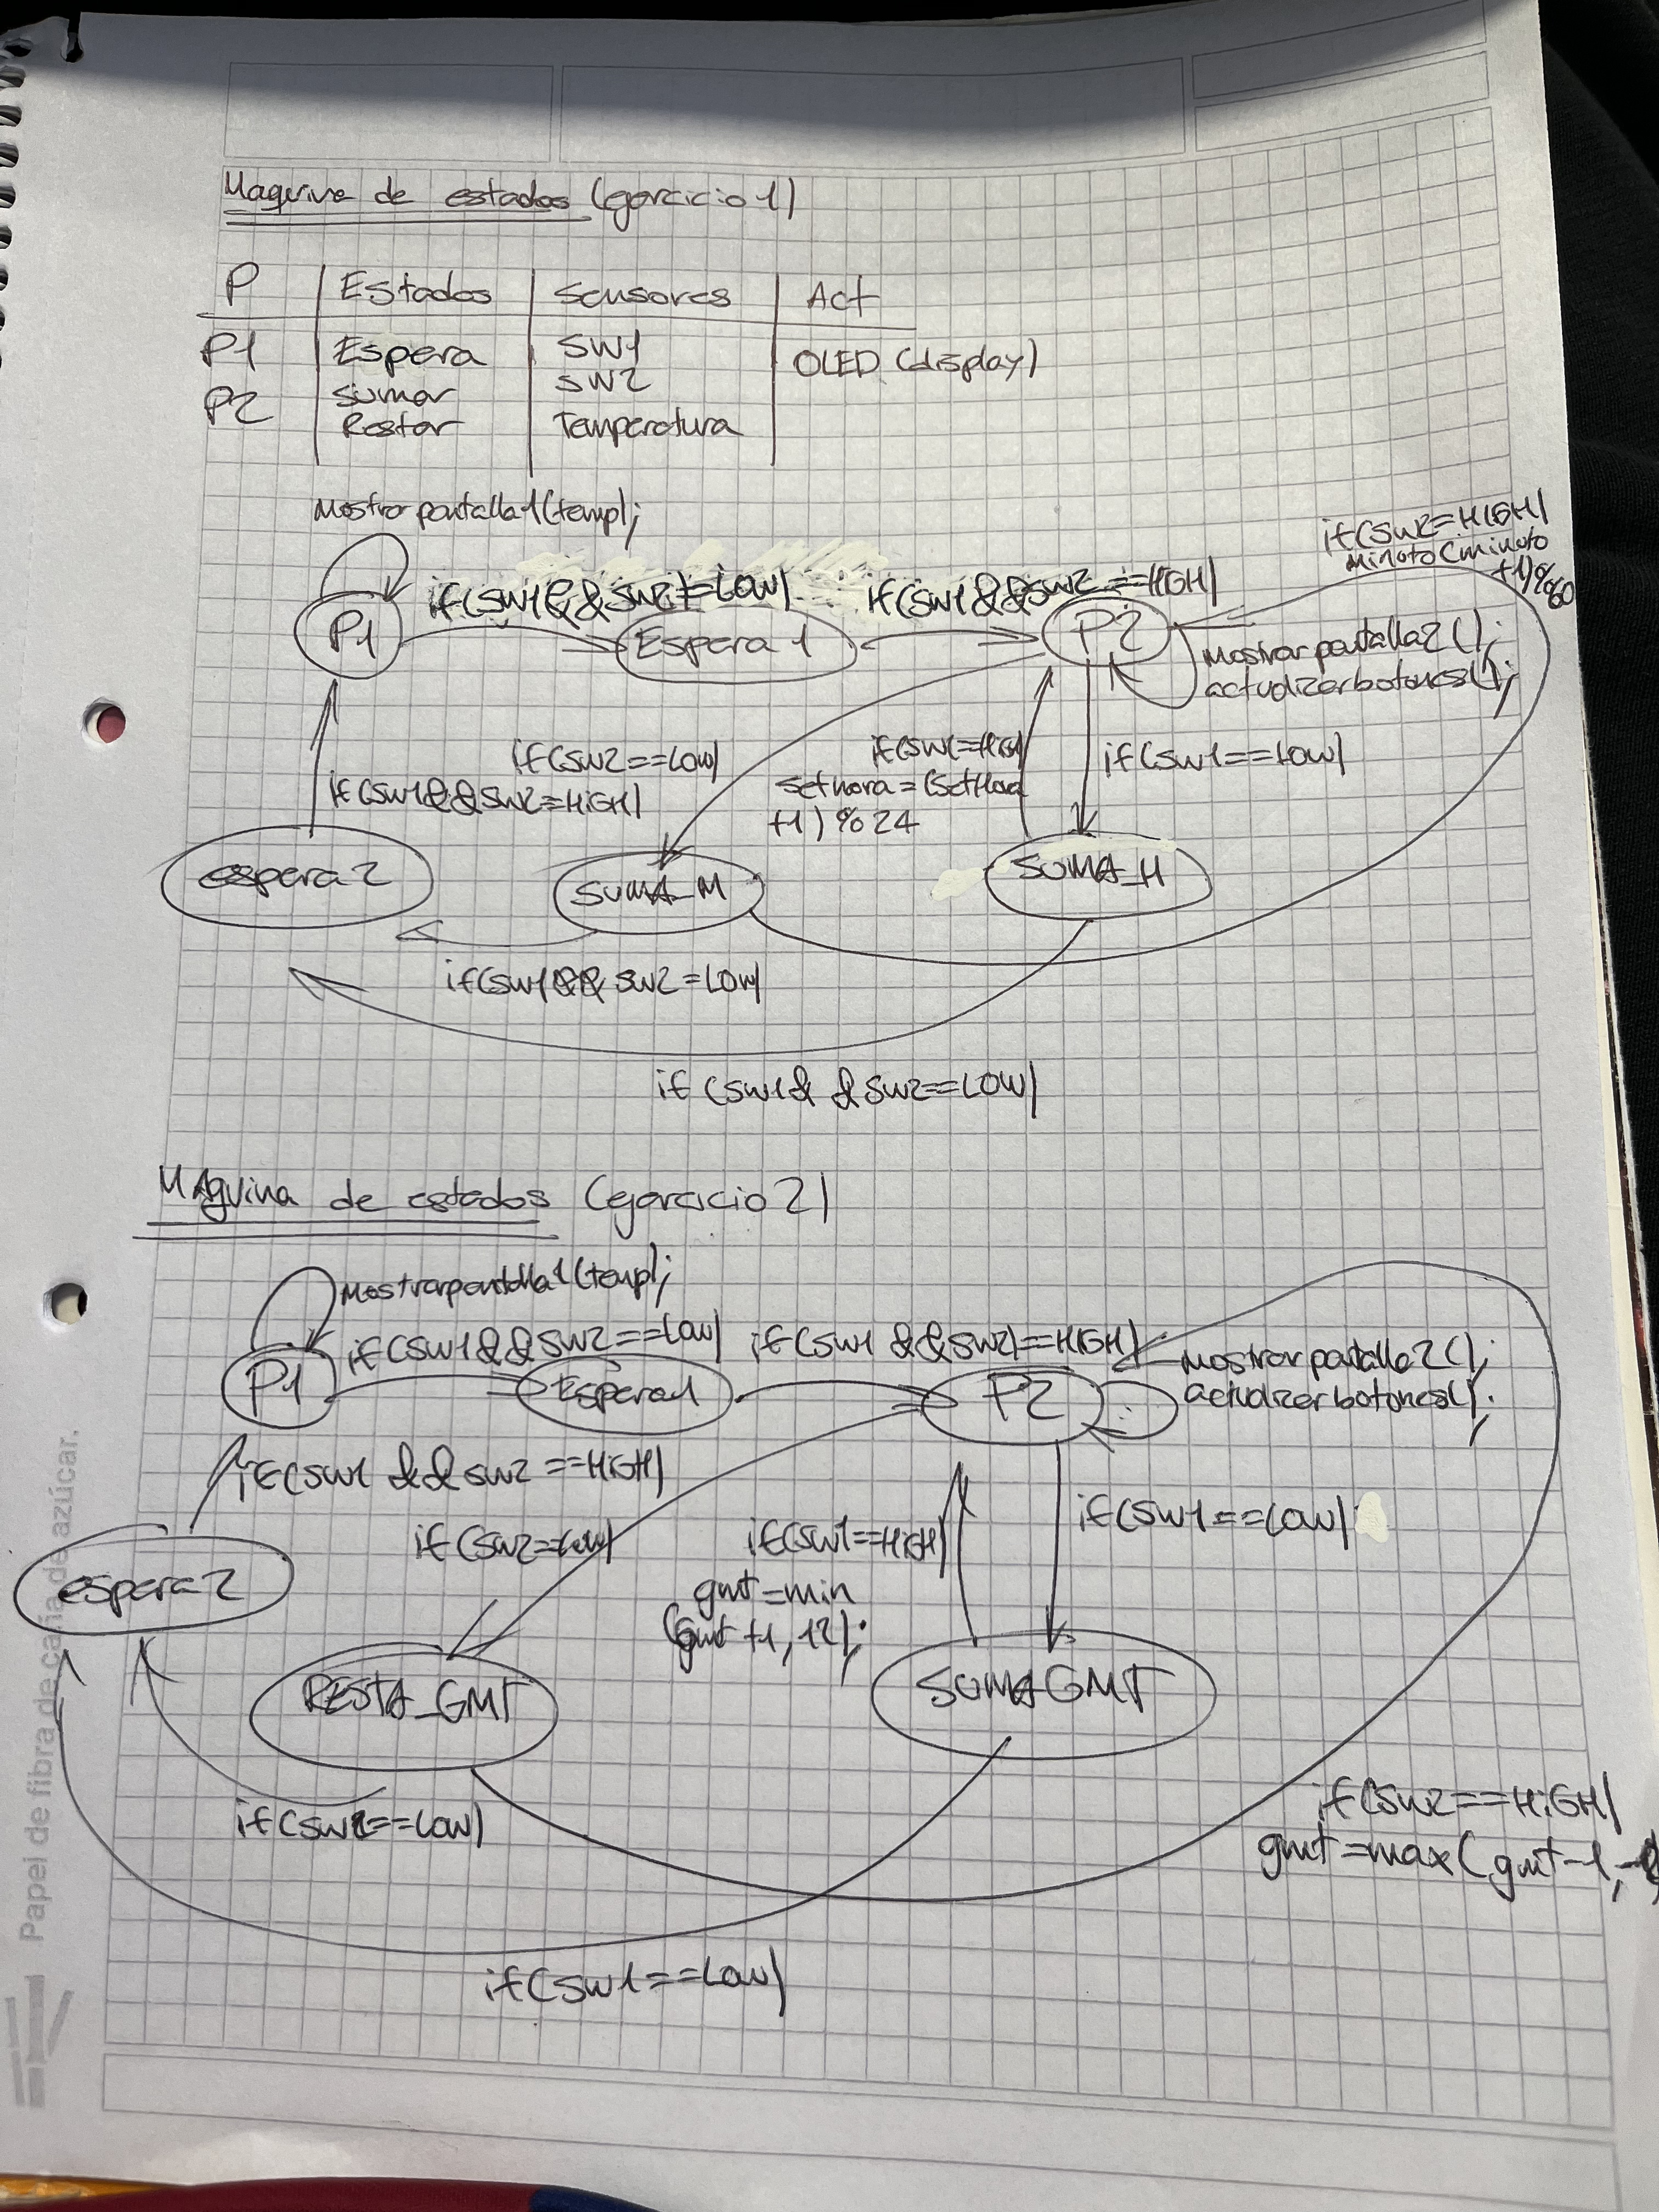 Maquina de estados (ejercicio 1)
P | Estados | Sensores | Act
P1 | Espera | SW1 | OLED (display)
P2 | Sumar | SW2
Restar | Temperatura
Mostrar pantalla1(temp);
if(SW1 && SW2)=LOW)
if(SW1 && SW2 ==HIGH)
if(SW2=HIGH)
minuto(minuto
+1)%60
P1
Espera 1
P2
Mostrar pantalla2();
actualizarbotones();
if(SW2==LOW)
if(SW1=HIGH
setHora=(setHora
+1)%24
if(SW1==LOW)
if(SW1&&SW2=HIGH)
espera 2
SUMA_M
SUMA_H
if(SW1&& SW2=LOW)
if (SW1& & SW2==LOW)
MAquina de estados (ejercicio 2)
Mostrarpantalla1(temp);
if(SW1&&SW2==LOW)
if(SW1 &&SW2)==HIGH)
P1
Espera1
P2
Mostrar pantalla2();
actualizarbotones();
if(SW1 && SW2 ==HIGH)
if(SW2=LOW)
if(SW1==HIGH)
gmt=min
(gmt+1,12);
if(SW1==LOW)
espera 2
RESTA_GMT
SUMAGMT
if(SW2==LOW)
if(SW2==HIGH)
gmt=max(gmt-1,-
if(SW1==LOW)
Papel de fibra de caña de azúcar.